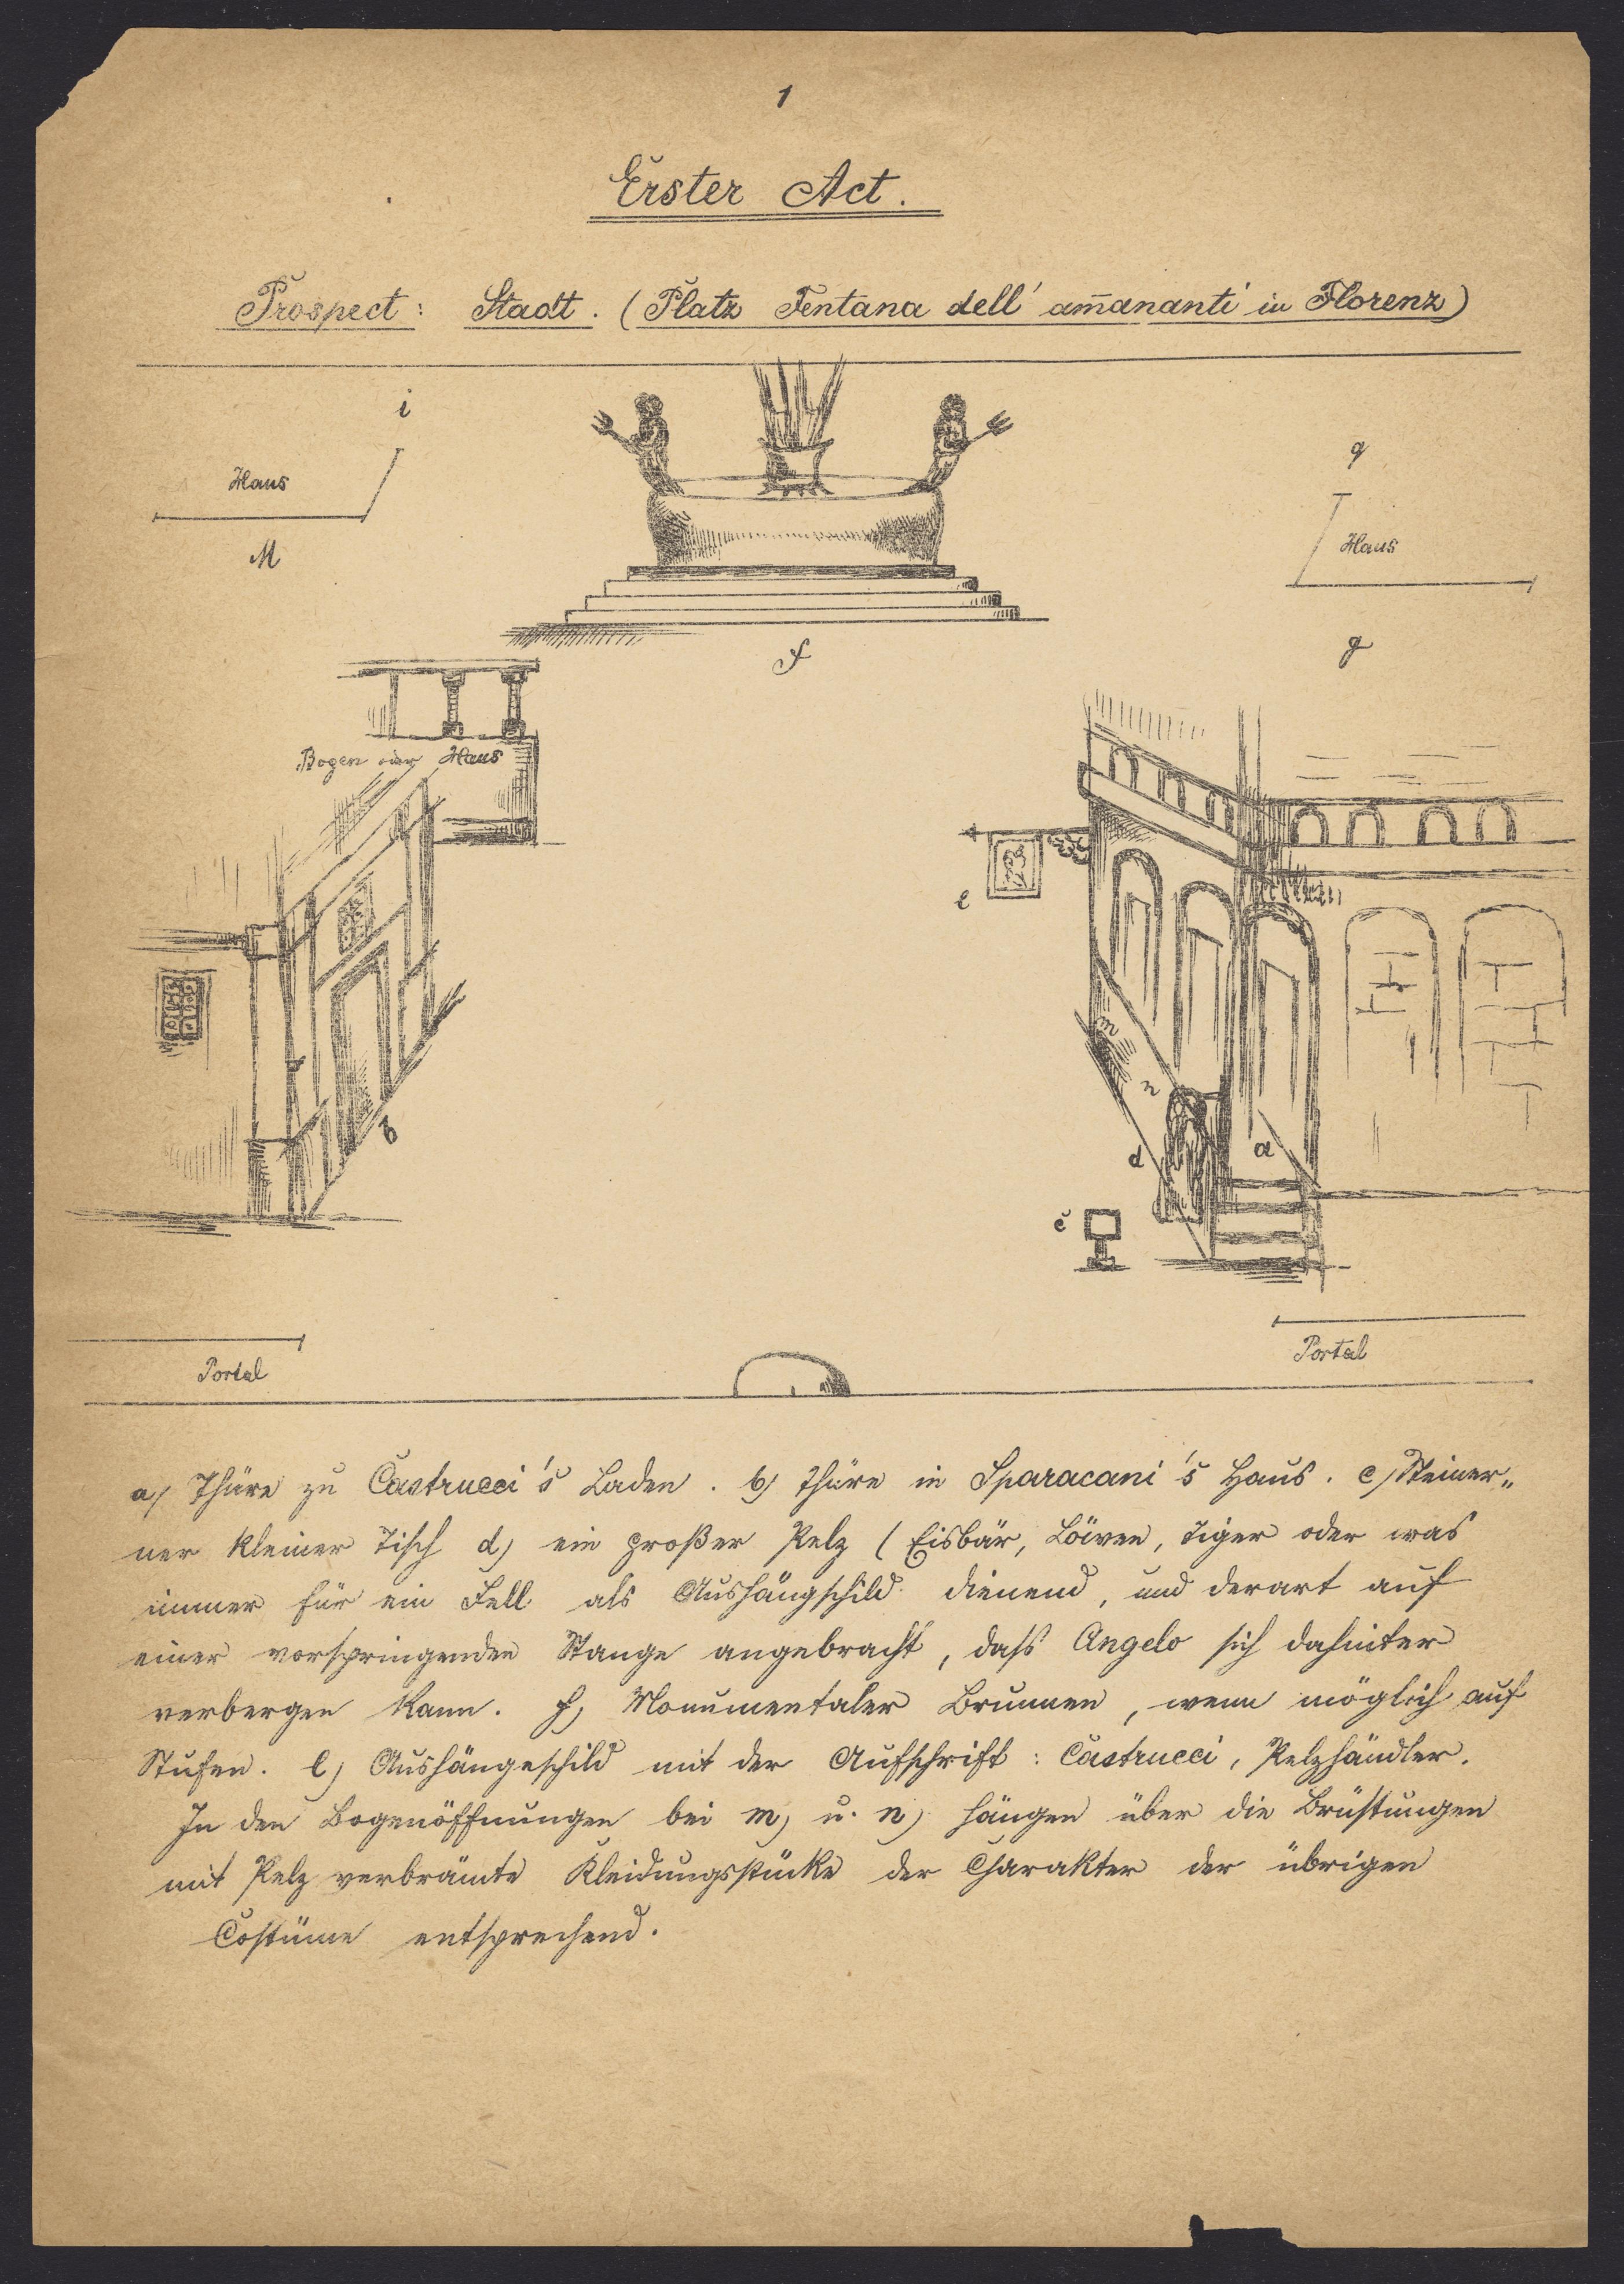 1
Erster Act.
Prospect: Stadt. (Platz Fentana dell' am̄ananti in Florenz)
i
Haus
M
q
Haus
g
f
Bogen oder Haus
b
l
m
n
d
a
c
Portal
Portal
a) Thüre zu Castrucci's Laden. b) Thüre in Sparacani's Haus. c) Steiner„
ner kleiner Tisch d) ein großer Pelz (Eisbär, Löwen, Tiger oder was
immer für ein Fell als Aushängschild dienend, und derart auf
einer vorspringenden Stange angebracht, daſs Angelo sich dahinter
verbergen kann. f) Monumentaler Brunnen, wenn möglich auf
Stufen. l) Aushängeschild mit der Aufschrift: Castrucci, Pelzhändler.
In den Bogenöffnungen bei m) u. n) hängen über die Brüstungen
mit Pelz verbrämte Kleidungsstücke der Charakter der übrigen
Costüme entsprechend.